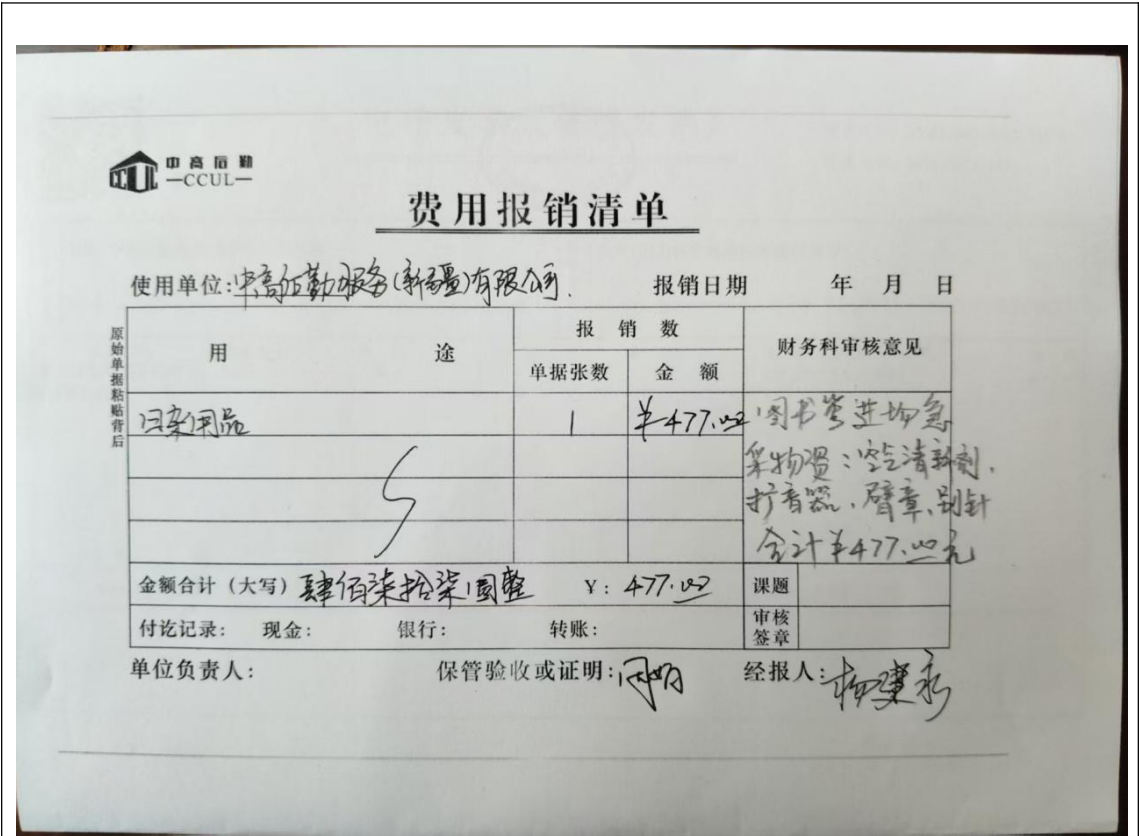 中高后勤
CCUL
—CCUL—
费用报销清单
使用单位:中高后勤服务(新疆)有限公司.
报销日期 年 月 日
原始单据粘贴背后
用 途
报 销 数
单据张数
金 额
财务科审核意见
日杂用品
1
¥477.00
图书馆进场急
采物资:空气清新剂、
扩音器、臂章、别针
合计¥477.00元
金额合计(大写) 肆佰柒拾柒圆整 ¥: 477.00
课题
付讫记录: 现金: 银行: 转账:
审核
签章
单位负责人:
保管验收或证明:
经报人: